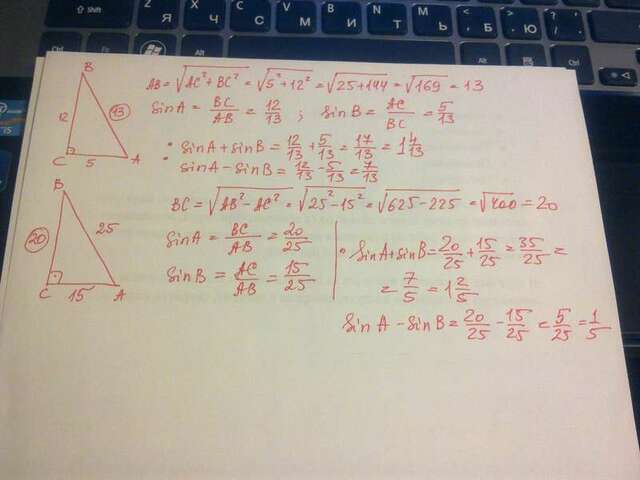 Z Я
X Ч
C С
V М
B И
N Т
M Ь
< Б
> Ю
Ctrl
Fn
Alt
B
12
13
C 5 A
AB = √(AC² + BC²) = √(5² + 12²) = √(25 + 144) = √169 = 13
sin A = BC/AB = 12/13 ; sin B = AC/BC = 5/13
• sin A + sin B = 12/13 + 5/13 = 17/13 = 1 4/13
• sin A − sin B = 12/13 − 5/13 = 7/13
B
20
25
C 15 A
BC = √(AB² − AC²) = √(25² − 15²) = √(625 − 225) = √400 = 20
sin A = BC/AB = 20/25
sin B = AC/AB = 15/25
• sin A + sin B = 20/25 + 15/25 = 35/25 =
= 7/5 = 1 2/5
sin A − sin B = 20/25 − 15/25 = 5/25 = 1/5